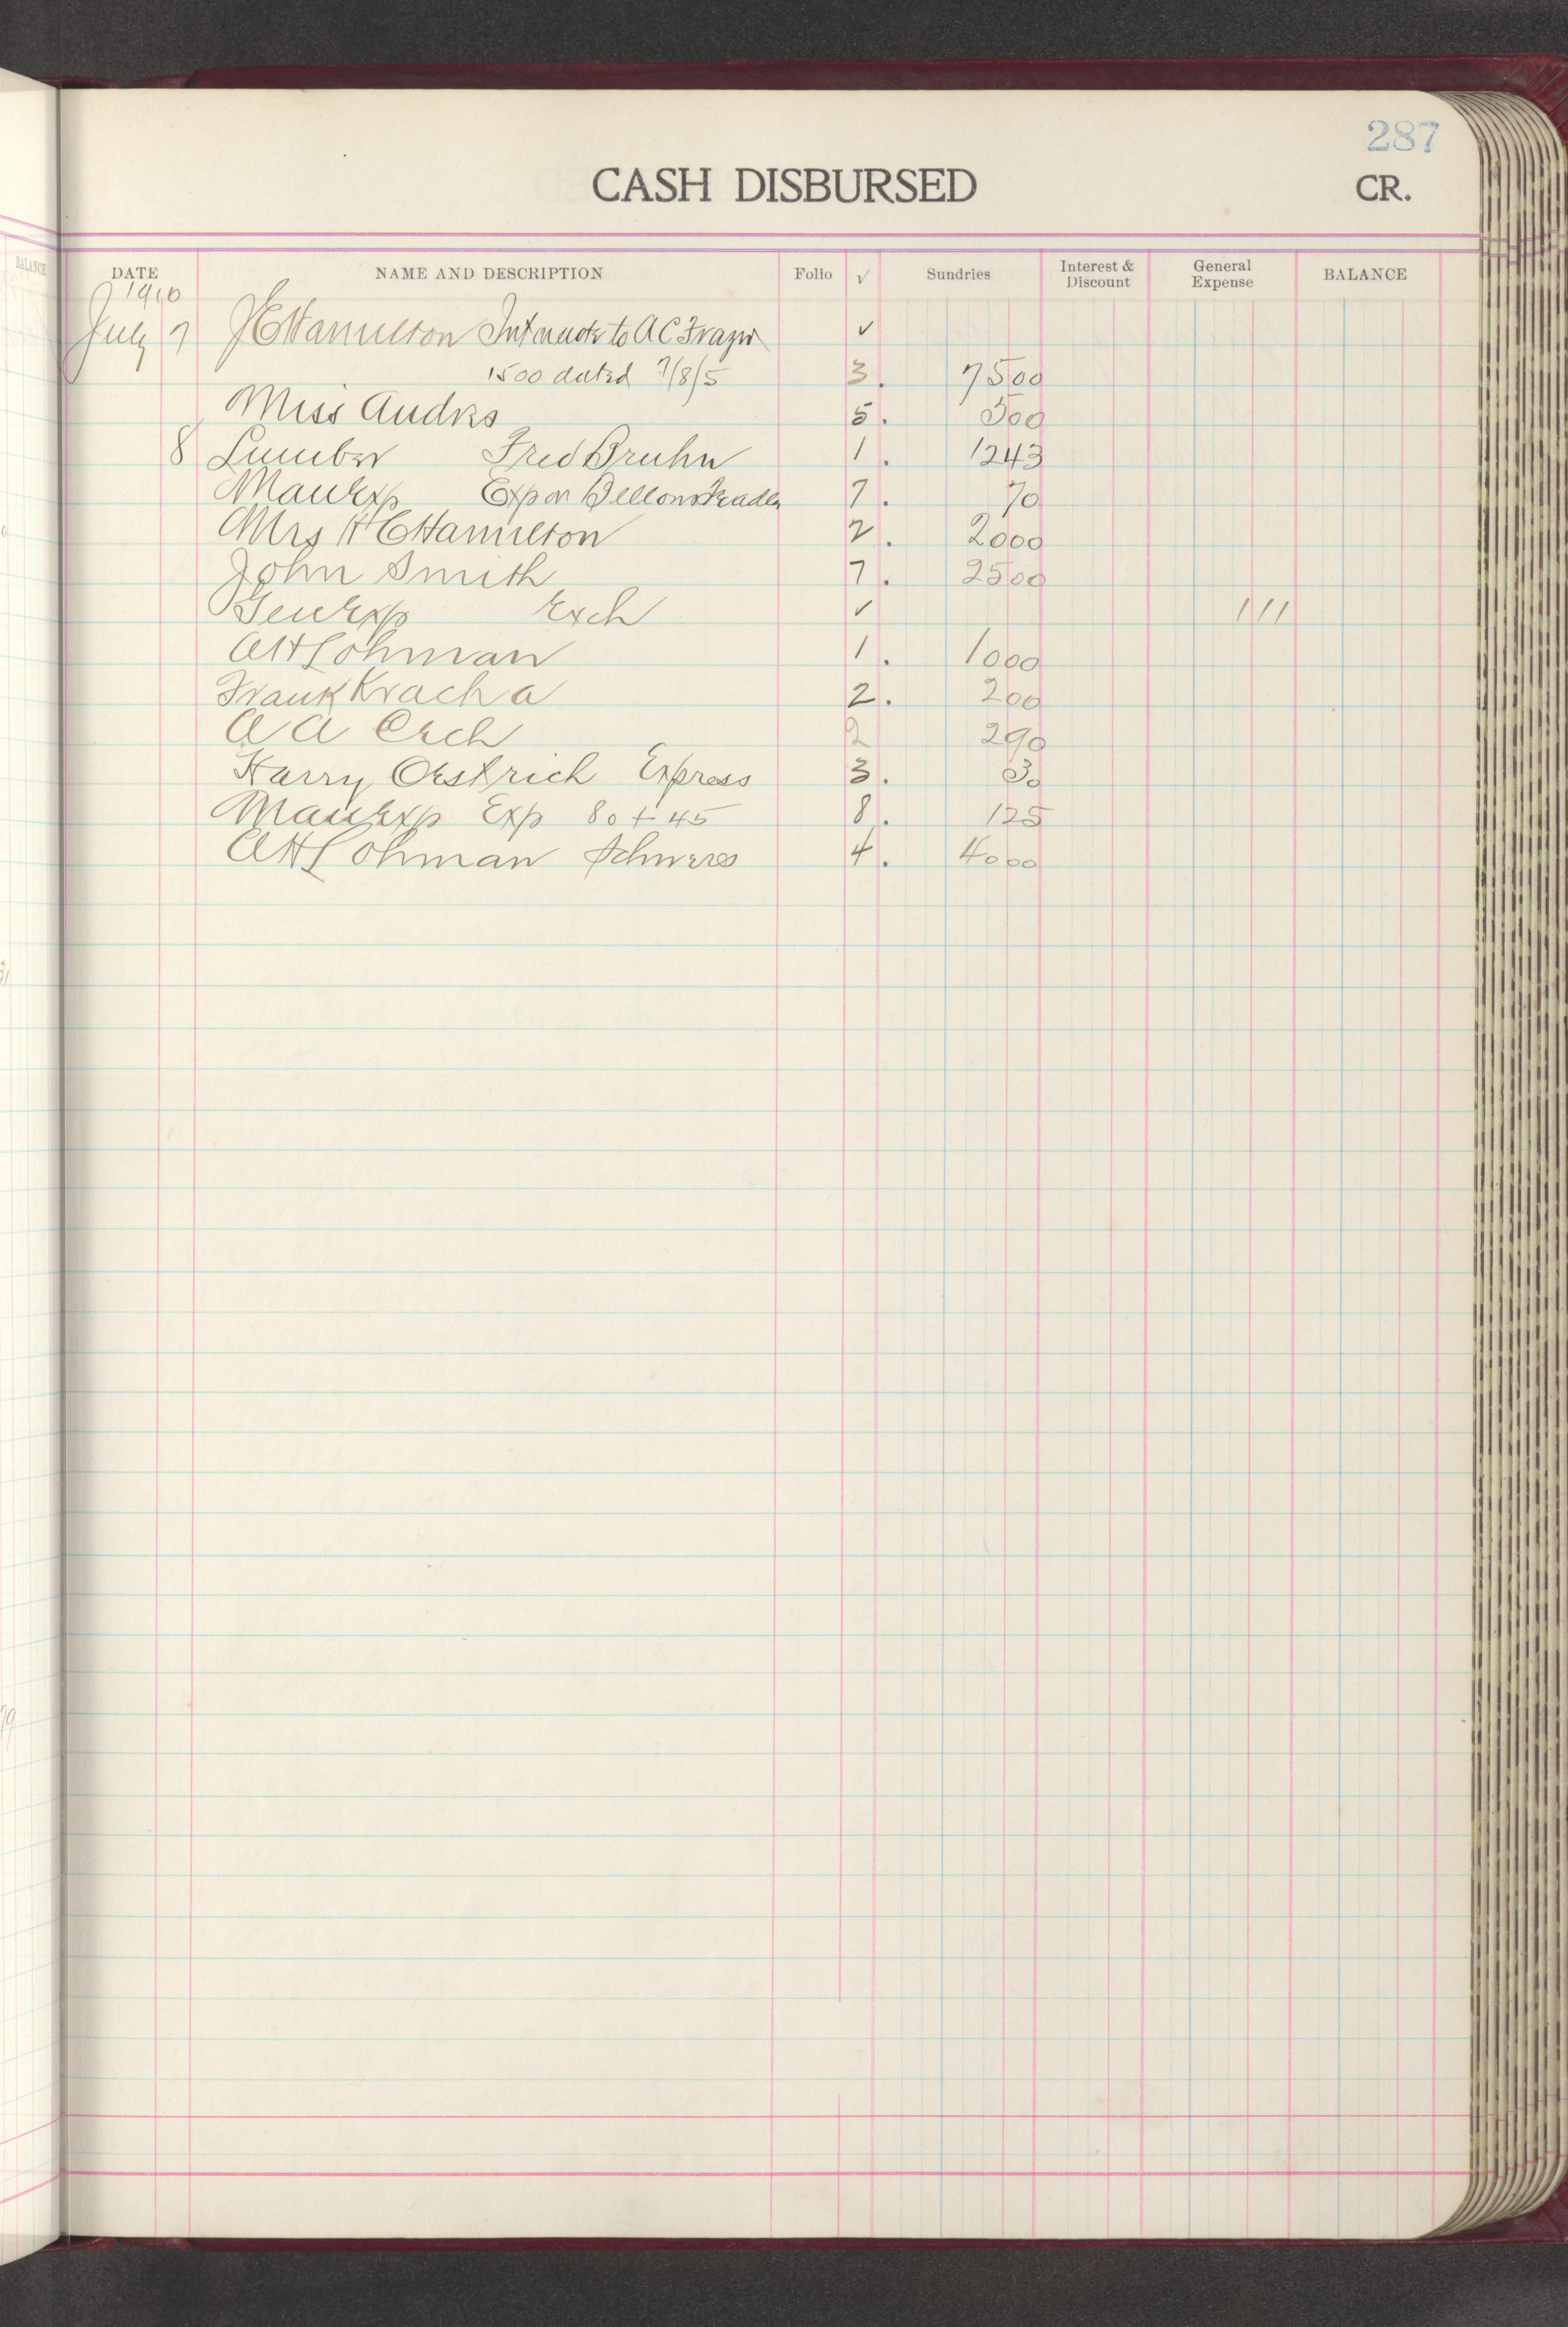 287
CASH DISBURSED CR.
BALANCE
DATE NAME AND DESCRIPTION Folio √ Sundries Interest & Discount General Expense BALANCE
1910
July 7 J E Hamilton Int on note to A C Frazer ✓
1500 dated 7/8/5 3. 7500
Miss Andrs 5. 500
8 Lumber Fred Bruhn 1. 1243
Man Exp Exp on 7. 70
Mrs H C Hamilton 2. 2000
John Smith 7. 2500
Gen Exp Exch ✓ 111
A H Lohman 1. 1000
Frank Kracha 2. 200
A A 2 290
Harry Oestrich Express 3. 30
Man Exp Exp 80 + 45 8. 125
A H Lohman 4. 4000